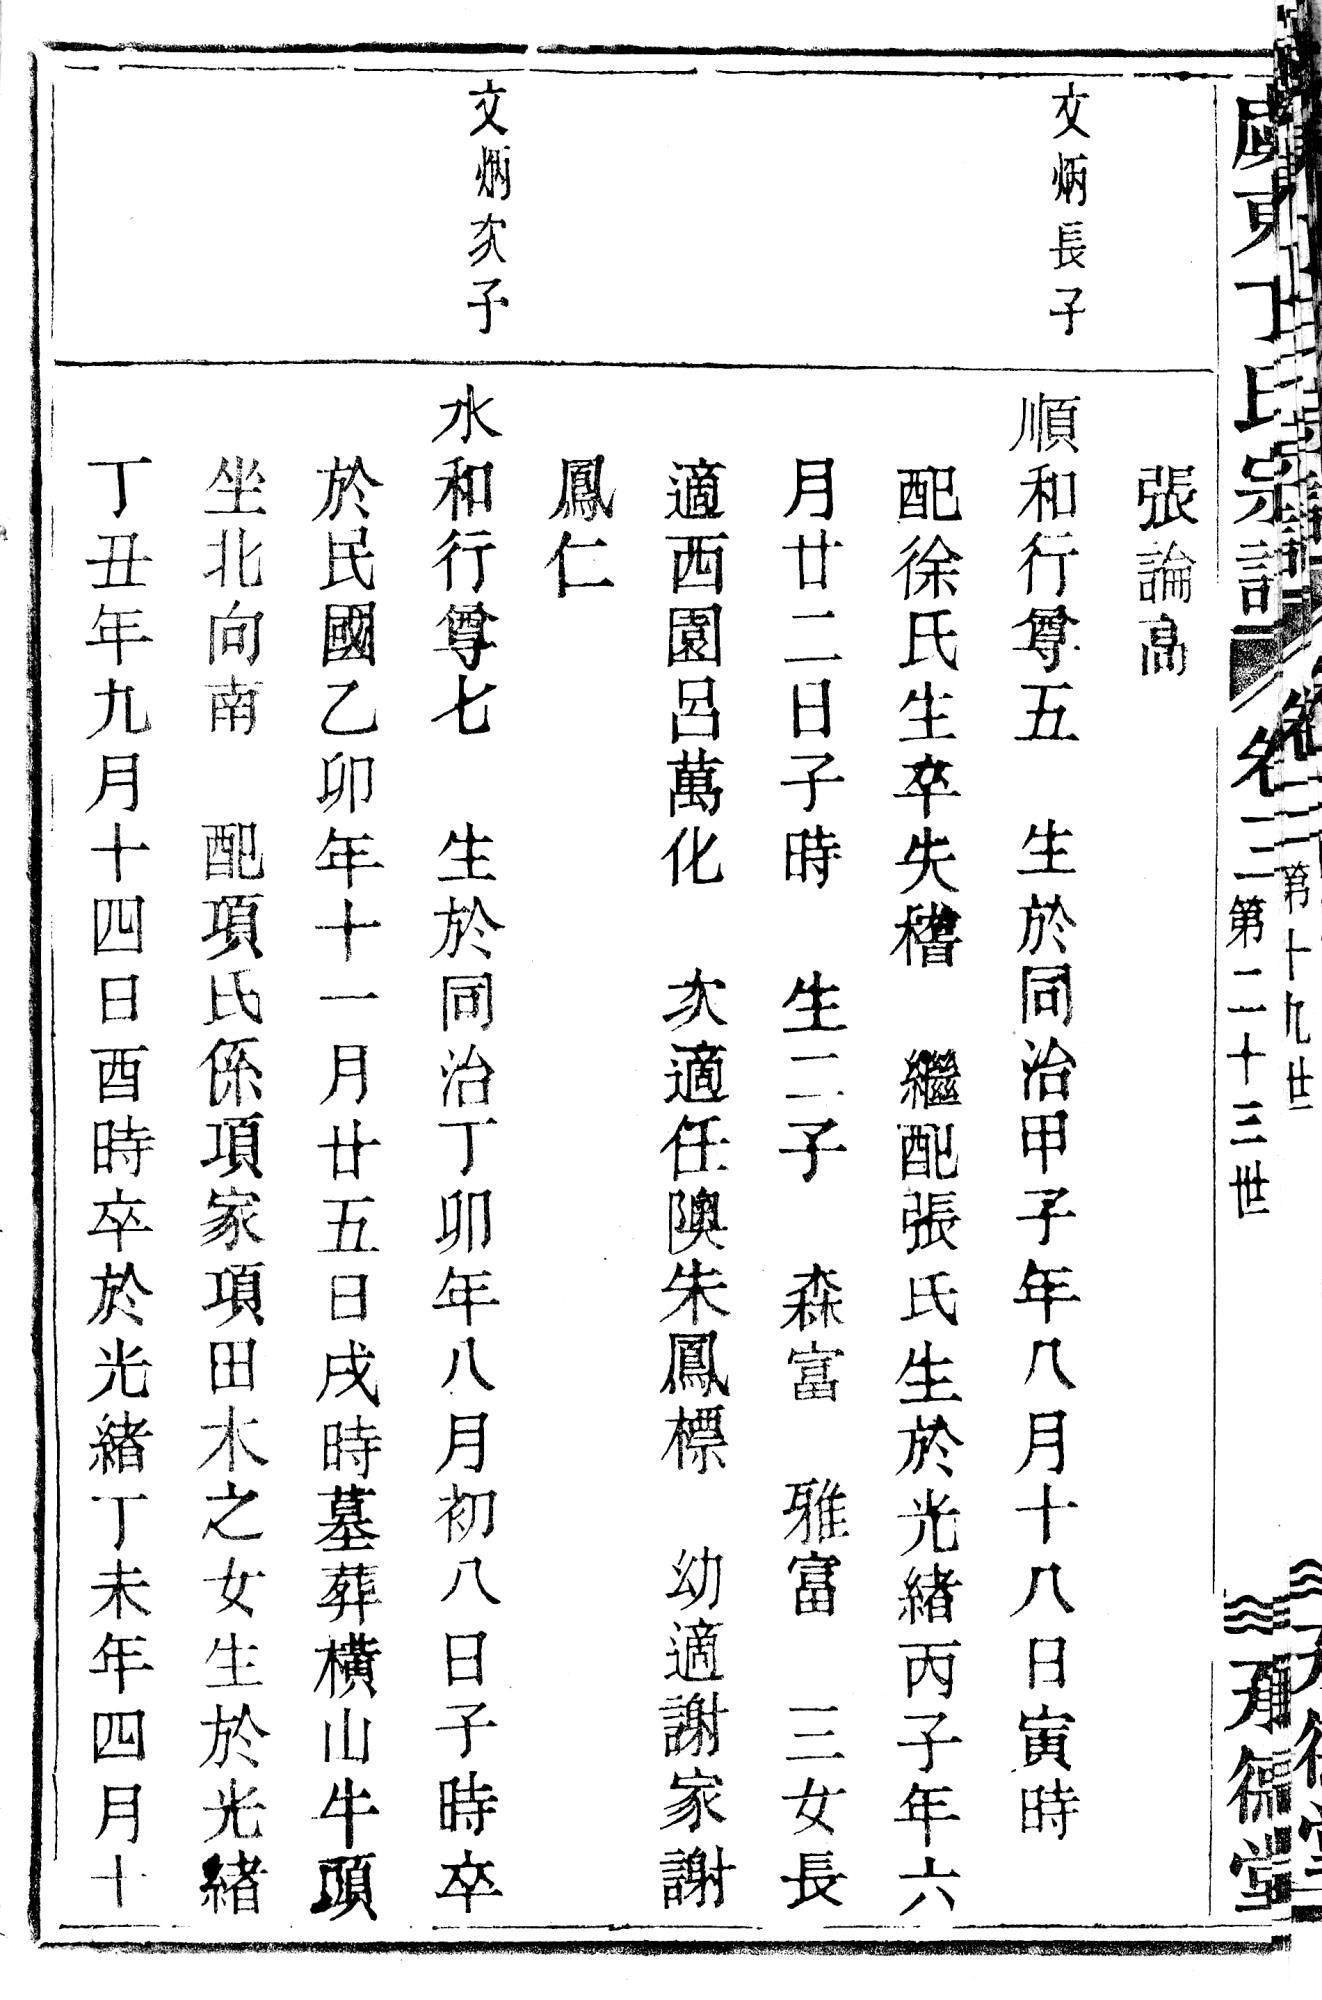 東丁氏宗譜 卷三 第二十三世
張論高
文炳長子
順和行尊五 生於同治甲子年八月十八日寅時
配徐氏生卒失稽 繼配張氏生於光緒丙子年六
月廿二日子時 生二子 森富 雅富 三女長
適西園呂萬化 次適任隩朱鳳標 幼適謝家謝
鳳仁
文炳次子
水和行尊七 生於同治丁卯年八月初八日子時卒
於民國乙卯年十一月廿五日戌時墓葬橫山牛頭
坐北向南 配項氏係項家項田木之女生於光緒
丁丑年九月十四日酉時卒於光緒丁未年四月十